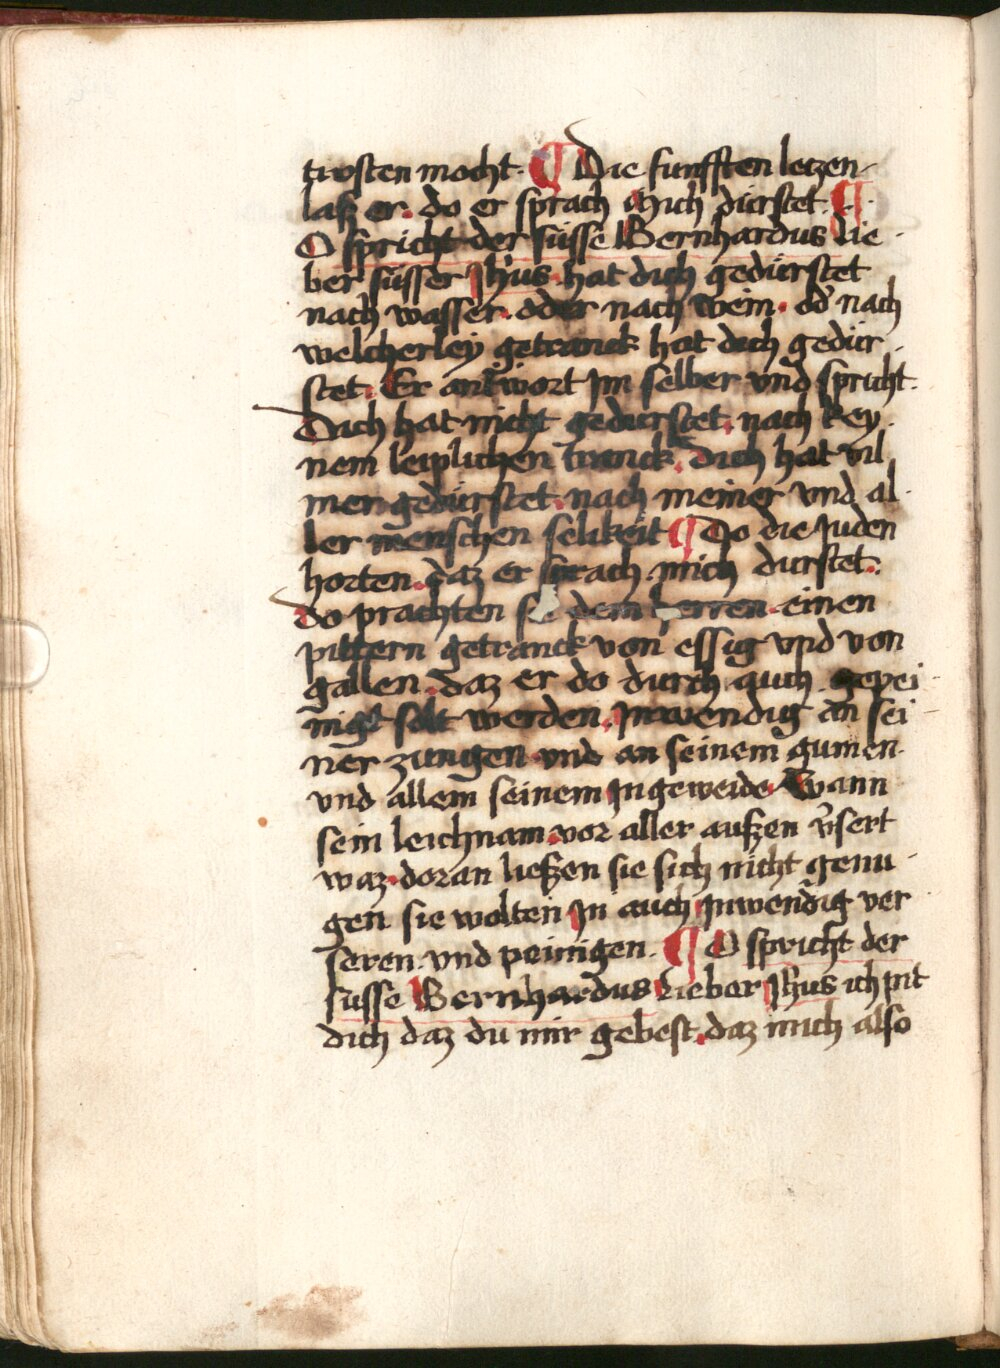 trosten mocht. ¶ Die funfften letzen
laß er. do er sprach Mich dürstet. ¶
O spricht der süsse Bernhardus Lie
ber süsser Jh̄us hat dich gedürstet
nach wasser. oder nach wein. od̓ nach
welcherley getranck hat dich gedür
stet. Er antwort jm selber vnd spricht.
Dich hat nicht gedürstet. nach key
nem leiplichen tranck. dich hat vil
mer gedürstet. nach meiner vnd al
ler menschen selikeit ¶ Do die Juden
horten. daz er sprach mich dürstet.
do prachten sie dem herren einen
pittern getranck von essig vnd von
gallen. daz er do durch auch gepei
nigt solt werden. Jnwendig an sei
ner zungen vnd an seinem gumen
vnd allem seinem Jngeweide. Wann
sein leichnam. vor aller außen v̓sert
waz. doran ließen sie sich nicht genu
gen sie wolten Jn auch Jnwendig ver
seren. vnd peinigen. ¶ O spricht der
süsse Bernhardus Lieber Jh̄us ich pit
dich daz du mir gebest. daz mich also